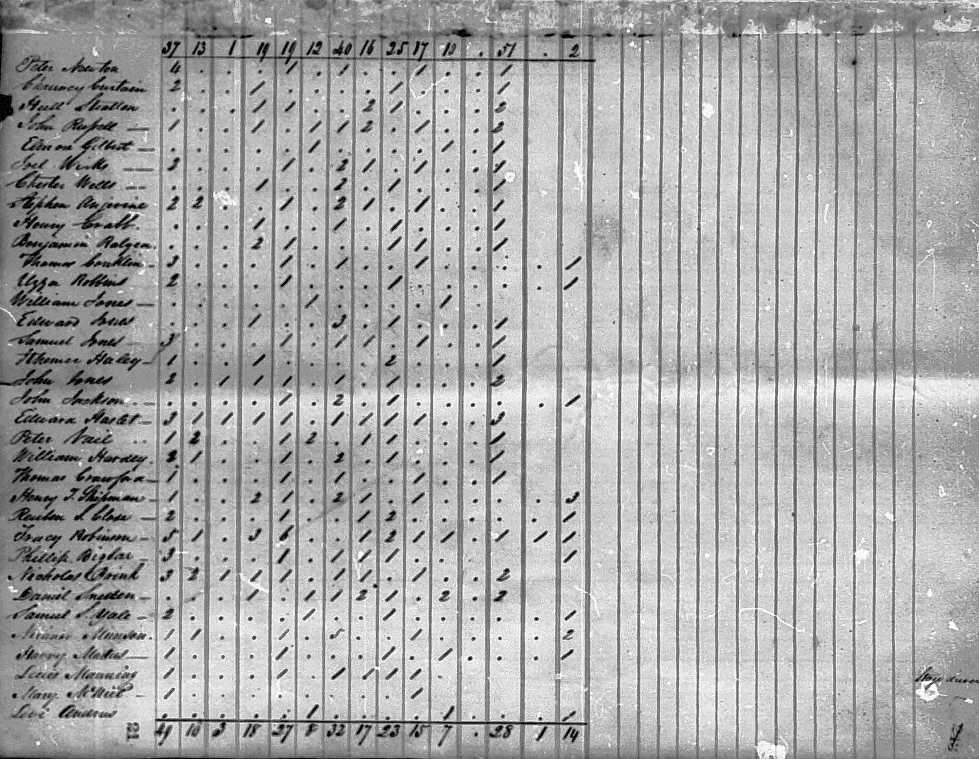 37 13 1 19 19 12 40 16 25 17 10 . 51 . 2
Peter Newton 4 . . . 1 . 1 . . 1 . . 1
Chauncy Curtain 2 . . 1 . . . . 1 . . . 1
Hull Stratton . . . 1 1 . . 2 1 . . . 2
John Russell — 1 . . 1 . 1 1 2 . 1 . . 2
Gilbert — . . . . . 1 . . . . 1 . 1
Joel Wicks — 2 . . . 1 . 2 1 . 1 . .
Chester Wells . . . 1 . . 2 . 1 . . . 1
Stephen Angevine 2 2 . . 1 . 2 1 . 1 . . 1
Henry Crabb . . . 1 . . 1 . 1 . . . 1
Benjamin . . . 2 1 . . . 1 1 . . 1
Thomas Conklin — 3 . . . 1 . 1 . . 1 . . . . 1
Uzza Robbins 2 . . . 1 . . . 1 . . . . . 1
William Jones — . . . . . 1 . . . . 1 .
Edward Jones . . . 1 . . 3 . 1 . . . 1
Samuel Jones — 3 . . . 1 . 1 1 . 1 . . 1
Haley 1 . . 1 . . . . 2 . . . 1
John Jones 2 . 1 1 1 . 1 . 1 . . . 2
John Jackson . . . . 1 . 2 . 1 . . . . . 1
Edward Haslet — 3 1 1 1 1 . 1 1 1 1 . . 3
Peter Vail 1 2 . . . 2 . 1 1 . . . 1
William Hardey 2 1 . . 1 . 2 . 1 . . . 1
Thomas Crawford 1 . . . 1 . 1 . 1 1 . . 1
Henry T. Shipman — 1 . . 2 1 . 2 1 . 1 . . . . 3
Reuben S. Close — 2 . . . 1 . . 1 2 . . . . . 1
Tracy Robinson — 5 1 . 3 6 . 1 1 2 1 1 . 1 1 1
Phillip 3 . . . 1 . 1 1 1 . . . . . 1
Nicholas Brink 3 2 1 1 1 . 1 1 . 1 . . 2
Daniel Sneden — . . . 1 . 1 1 2 . . 2 . 2
Samuel S. Yale — 2 . . . . 1 . . 1 . . . . . 1
Munson 1 1 . . 1 . 5 . . 1 . . . . 2
Harvey — 1 . . . 1 . . . 1 . 1 . . . 1
Lewis Manning 1 . . . 1 . 1 1 1 1 . .
Mary McNeil — 1 . . . . . . . . 1 . .
Levi Andrus . . . . . 1 . . . . 1 . . . 1
49 10 3 18 27 8 32 17 23 15 7 . 28 1 14